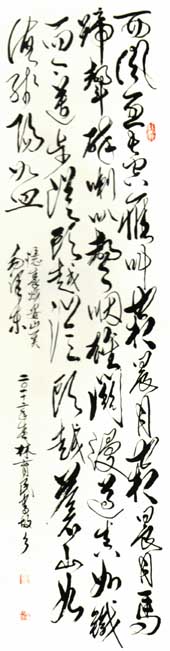 西風烈長空雁叫霜晨月霜晨月馬
蹄聲碎喇叭聲咽雄關漫道真如鐵
而今邁步從頭越從頭越蒼山如
海殘陽如血
憶秦娥婁山關
毛澤東
二〇十二年